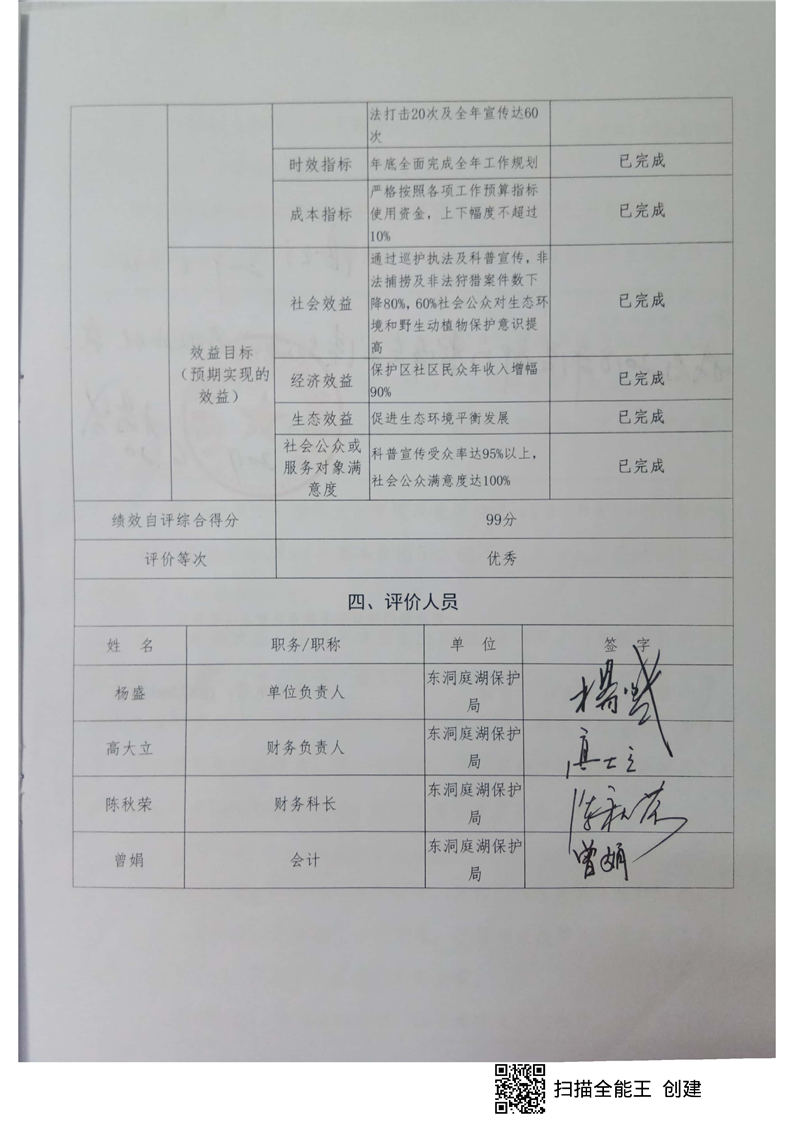 法打击20次及全年宣传达60
次
时效指标 年底全面完成全年工作规划 已完成
成本指标 严格按照各项工作预算指标
使用资金，上下幅度不超过
10%
已完成
效益目标
（预期实现的
效益）
社会效益
通过巡护执法及科普宣传，非
法捕捞及非法狩猎案件数下
降80%，60%社会公众对生态环
境和野生动植物保护意识提
高
已完成
经济效益
保护区社区民众年收入增幅
90%
已完成
生态效益 促进生态环境平衡发展 已完成
社会公众或
服务对象满
意度
科普宣传受众率达95%以上，
社会公众满意度达100%
已完成
绩效自评综合得分 99分
评价等次 优秀
四、评价人员
姓 名 职务/职称 单 位 签 字
杨盛 单位负责人 东洞庭湖保护
局
楊盛
高大立 财务负责人 东洞庭湖保护
局
高大立
陈秋荣 财务科长 东洞庭湖保护
局
陈秋荣
曾娟 会计 东洞庭湖保护
局
曾娟
扫描全能王 创建